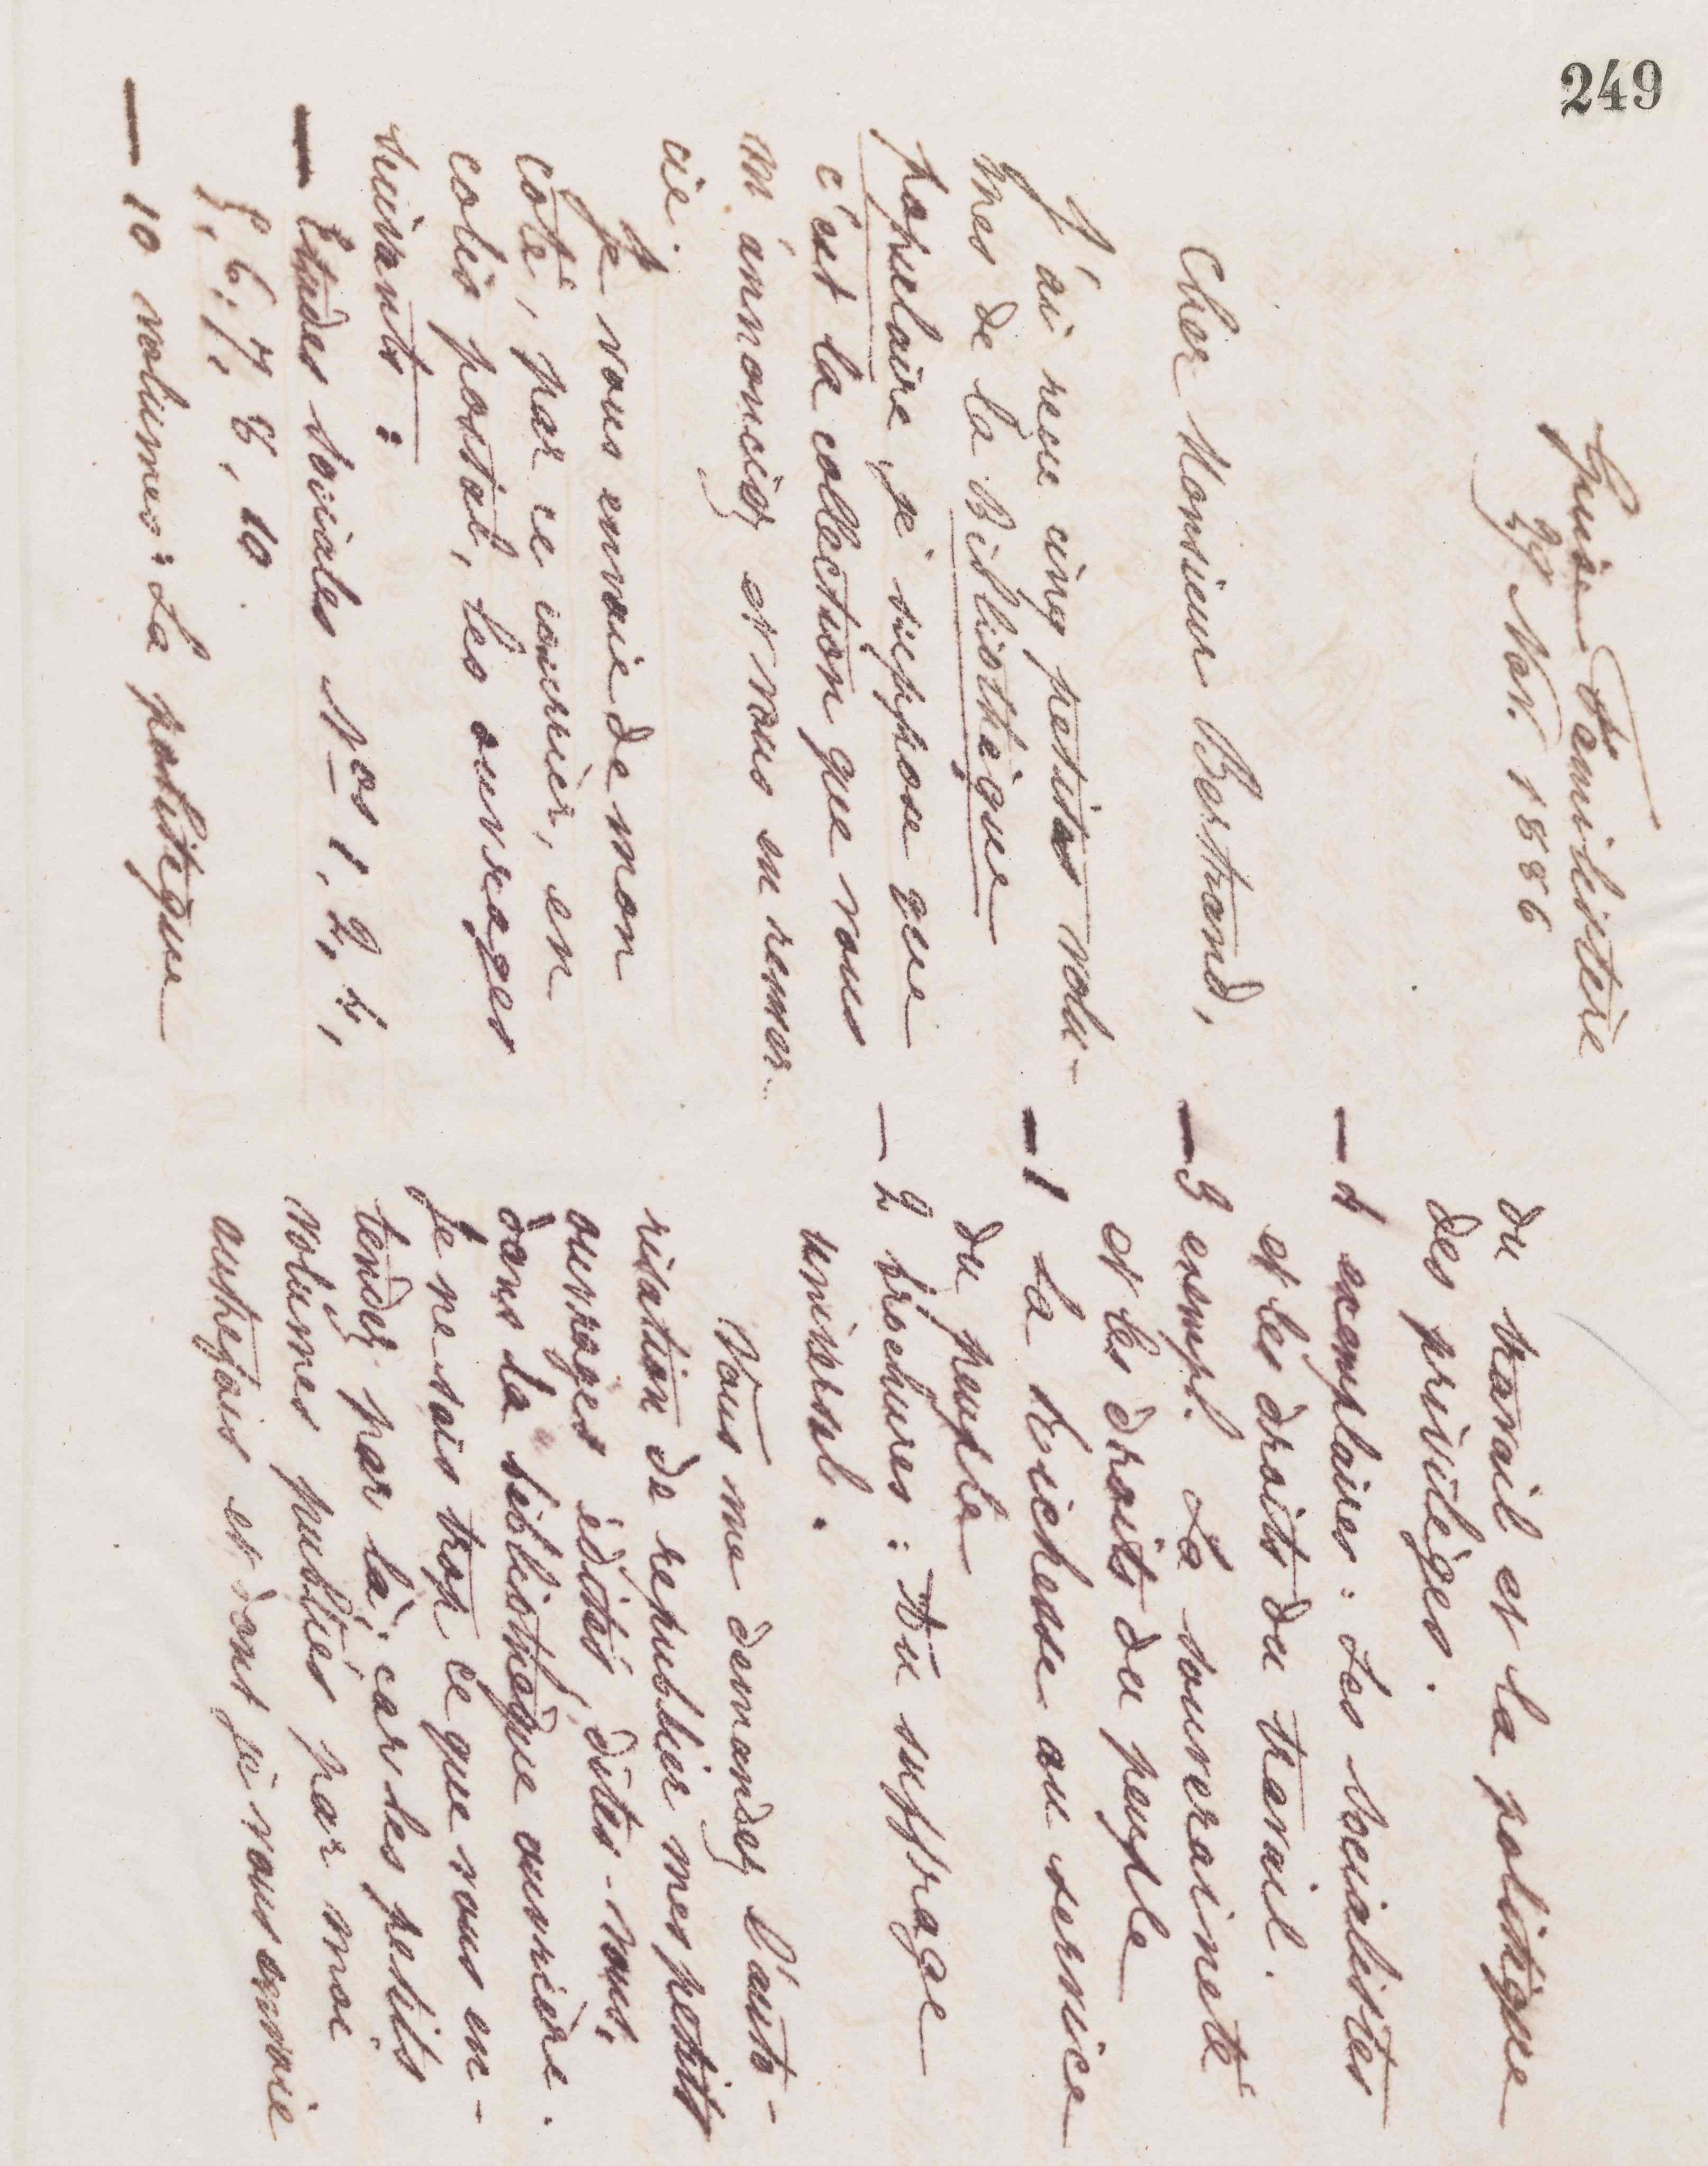 249
Guise Familistère
29 Nov. 1886
Cher Monsieur Bertrand,
J'ai reçu cinq petits volu-
mes de la Bibliothèque
populaire je suppose que
c'est la collection que vous
m'annonciez et vous en remer-
cie.
Je vous envoie de mon
côté, par ce courrier, en
colis postal, les ouvrages
suivants :
— Etudes sociales Nos 1, 2, 4,
5, 6, 7, 8, 10.
— 10 volumes: La politique
du travail et la politique
des privilèges.
— 4 exemplaires: Les socialistes
et les droits du travail.
— 3 exempl. La souveraineté
et les droits du peuple
— 1 La richesse au service
du peuple
— 2 brochures: Du suffrage
universel.
Vous me demandez l'auto-
risation de republier mes petits
ouvrages édités, dites-vous,
dans la bibliothèque ouvrière.
Je ne sais trop ce que vous en-
tendez par là; car les petits
volumes publiés par moi
autrefois et dont je vous envoie